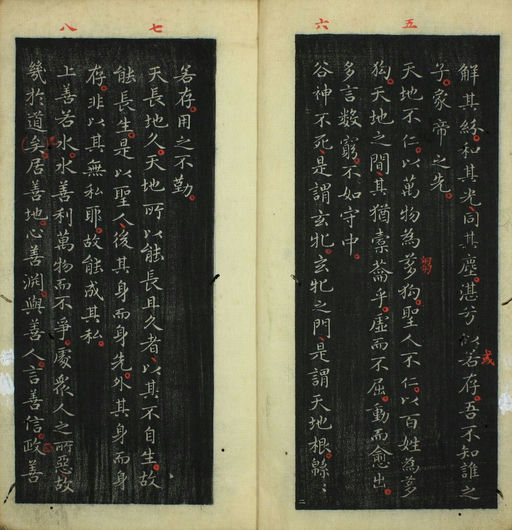 五
六
解其紛和其光同其塵湛兮似若存吾不知誰之
或
子象帝之先
天地不仁以萬物為芻狗聖人不仁以百姓為芻
芻
狗天地之間其猶橐籥乎虛而不屈動而愈出
多言數窮不如守中
谷神不死是謂玄牝玄牝之門是謂天地根緜〻
七
八
若存用之不勤
天長地久天地所以能長且久者以其不自生故
能長生是以聖人後其身而身先外其身而身
存非以其無私耶故能成其私
上善若水水善利萬物而不爭處衆人之所惡故
幾於道矣居善地心善淵與善人言善信政善